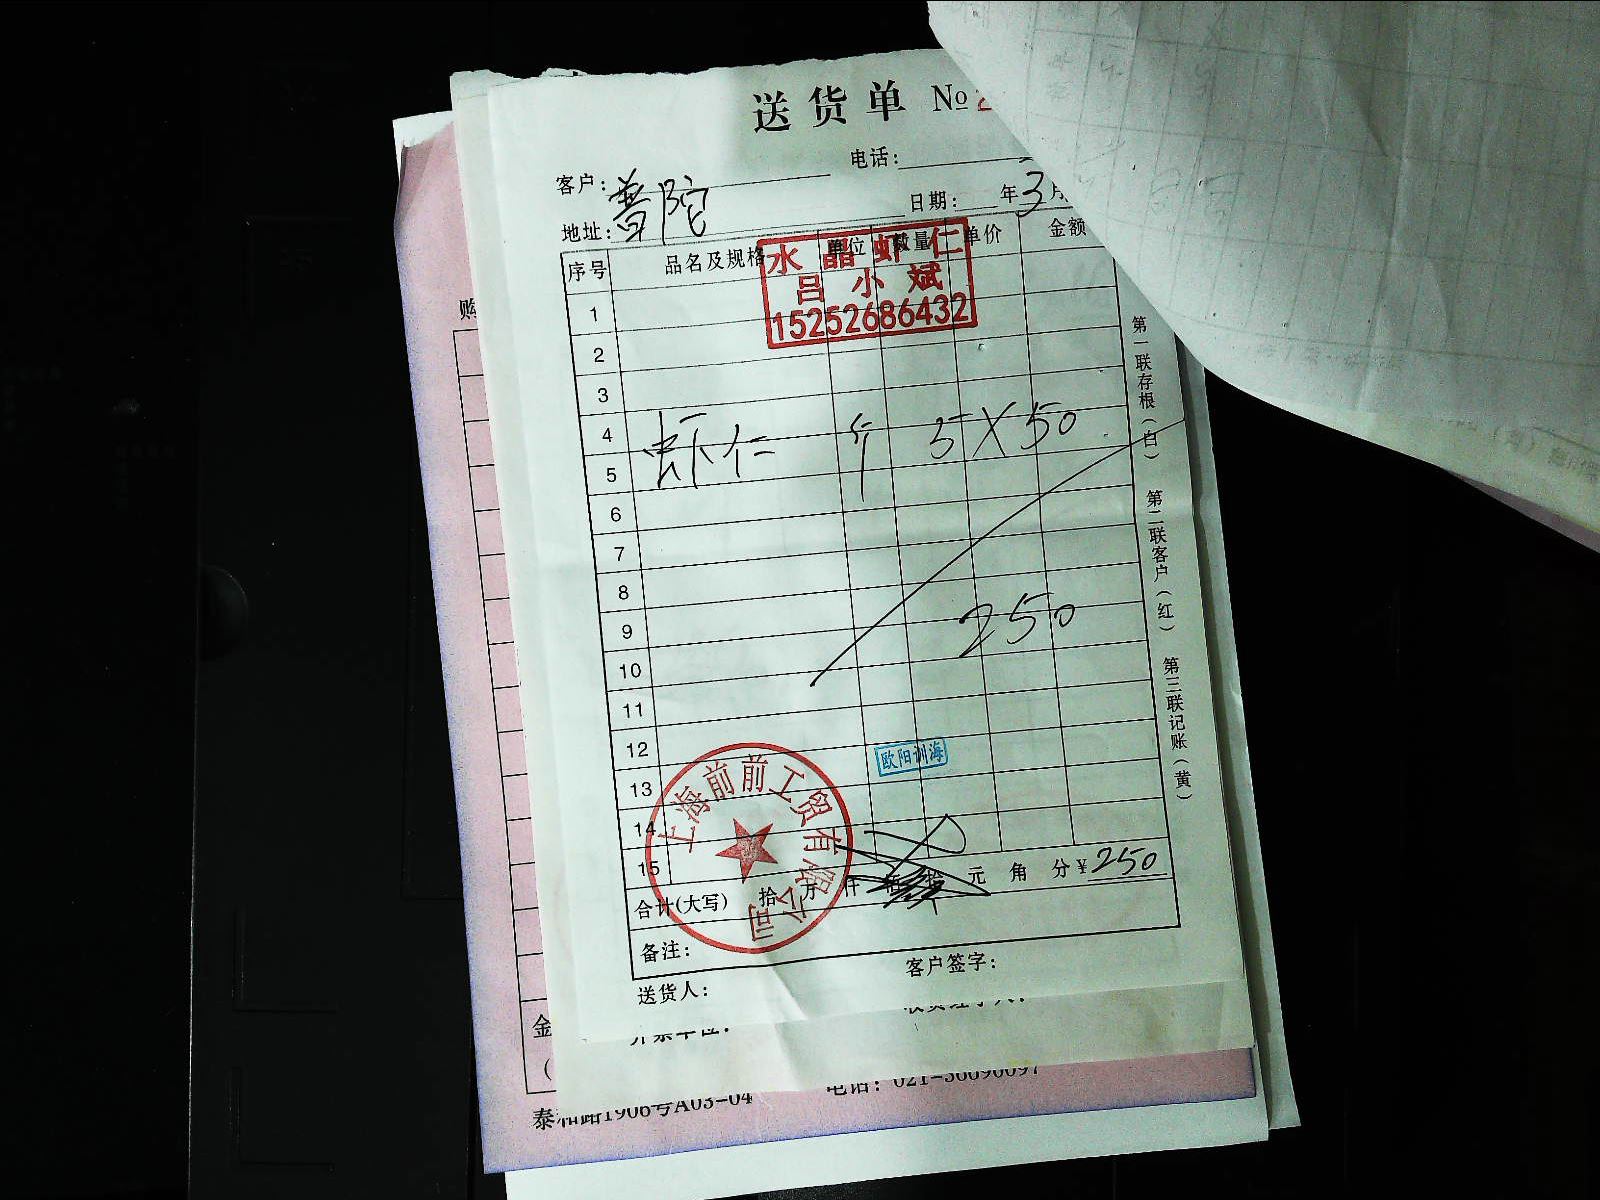 送货单 №2
电话：
客户：
普陀
日期： 年3月
地址：
序号 品名及规格 单位 数量 单价 金额
水晶虾仁
吕小斌
15252686432
1
2
3
4
虾仁 斤 5×50
5
6
7
8
9
250
10
11
12
欧阳训海
13
14
15
上海前前工贸有限公司
合计(大写) 拾 万 仟 佰 拾 元 角 分¥250
备注：
客户签字：
送货人：
第一联存根（白） 第二联客户（红） 第三联记账（黄）
购
金
（
电话：021-56690697
泰和路1906号A03-04